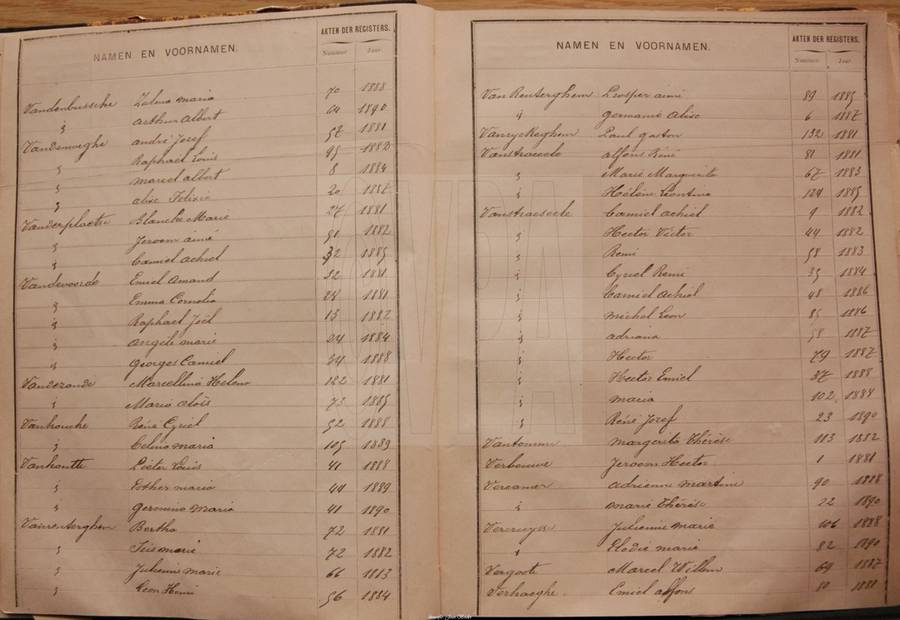 AKTEN DER REGISTERS.
NAMEN EN VOORNAMEN.
Nummer. Jaar.
Vandenbussche Zelma maria 70 1888
" Arthur Albert 64 1890
Vandenweghe andré Jozef 57 1881
" Raphaël Louis 95 1882
" marcel albert 8 1884
" alise Felixie 20 1887
Vanderplaetse Blanche Marie 27 1881
" Jeroom aimé 51 1882
" Camiel achiel 32 1885
Vandevoorde Emiel Amand 32 1881
" Emma Cornelia 28 1881
" Raphaël Joël 15 1882
" angèle marie 24 1884
" Georges Camiel 34 1888
Vandezande Marcellina Helena 122 1881
" Maria Aloïs 73 1885
Vanhoucke René Cyriel 52 1888
" Celina maria 105 1889
Vanhoutte Pieter Louis 41 1888
" Esther maria 44 1889
" Geromina Maria 41 1890
Vanrenterghem Bertha 72 1881
" marie 72 1882
" Julienne marie 66 1883
" Leon Henri 56 1884
AKTEN DER REGISTERS.
NAMEN EN VOORNAMEN.
Nummer. Jaar.
Van Renterghem Prosper aimé 89 1885
" Germanie Alise 6 1887
Vanryckeghem Paul gaston 132 1881
Vanstraceele alfons René 81 1881
" Marie Marguerite 67 1883
" Helène Leontina 124 1885
Vanstraeseele Camiel achiel 9 1882
" Hector Victor 44 1882
" Remi 58 1883
" Cyriel Remi 35 1884
" Camiel Achiel 48 1886
" michel Leon 85 1886
" adriana 58 1887
" Hector 79 1887
" Hector Emiel 37 1888
" maria 102 1884
" René Jozef 23 1890
Vantomme margerite Thérèse 113 1882
Verbouwe Jeroom Hector 1 1881
Vereamer adrienne martine 90 1888
" marie Thérèse 22 1890
Vercruysse Julienne marie 106 1888
" Elodie marie 82 1890
Vergote Marcel Willem 69 1887
Verhaeghe Emiel alfons 80 1881